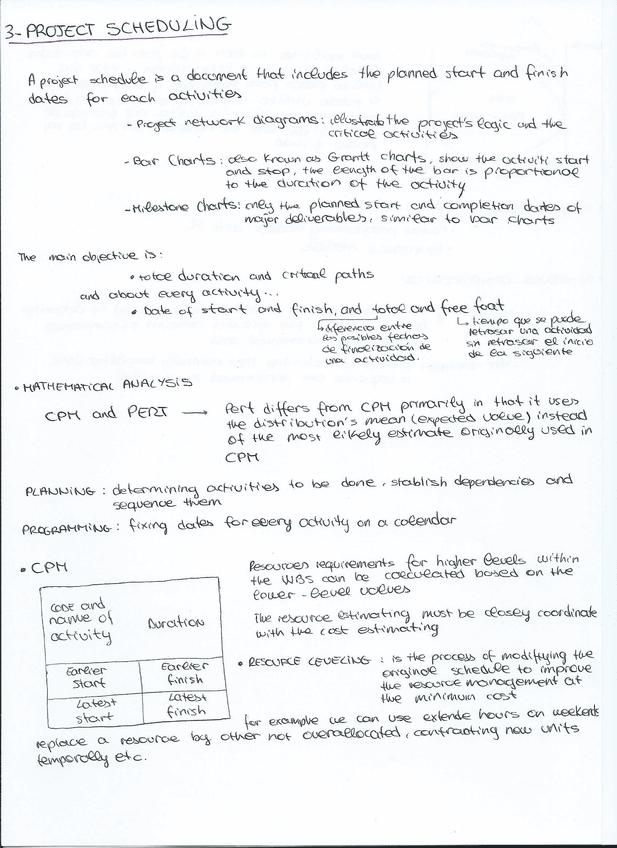 3-PROJECT SCHEDULING
A project schedule is a document that includes the planned start and finish
dates for each activities
- Project network diagrams: illustrate the project's logic and the
critical activities
- Bar Charts: also known as Grantt charts, show the activiti start
and stop, the length of the bar is proportional
to the duration of the activity
- Milestone Charts: only the planned start and completion dates of
major deliverables, similar to bar charts
The main objective is:
• total duration and critical paths
and about every activity...
• Date of start and finish, and total and free foat
↳ diferencia entre
las posibles fechas
de finalización de
una actividad.
↳ tiempo que se puede
retrasar una actividad
sin retrasar el inicio
de la siguiente
• MATHEMATICAL ANALYSIS
CPM and PERT → Pert differs from CPM primarily in that it uses
the distribution's mean (expected value) instead
of the most likely estimate originally used in
CPM
PLANNING: determining activities to be done, stablish dependencies and
sequence them
PROGRAMMING: fixing dates for every activity on a calendar
• CPM
Code and
name of
activity
Duration
Earlier
start
Earlier
finish
Latest
start
Latest
finish
Resources requirements for higher levels within
the WBS can be calculated based on the
lower-level values
The resource estimating must be closey coordinate
with the cost estimating
• RESOURCE LEVELING: is the process of modifying the
original schedule to improve
the resource management at
the minimum cost
for example we can use extende hours on weekents
replace a resource by other not overallocated, contracting new units
temporally etc.